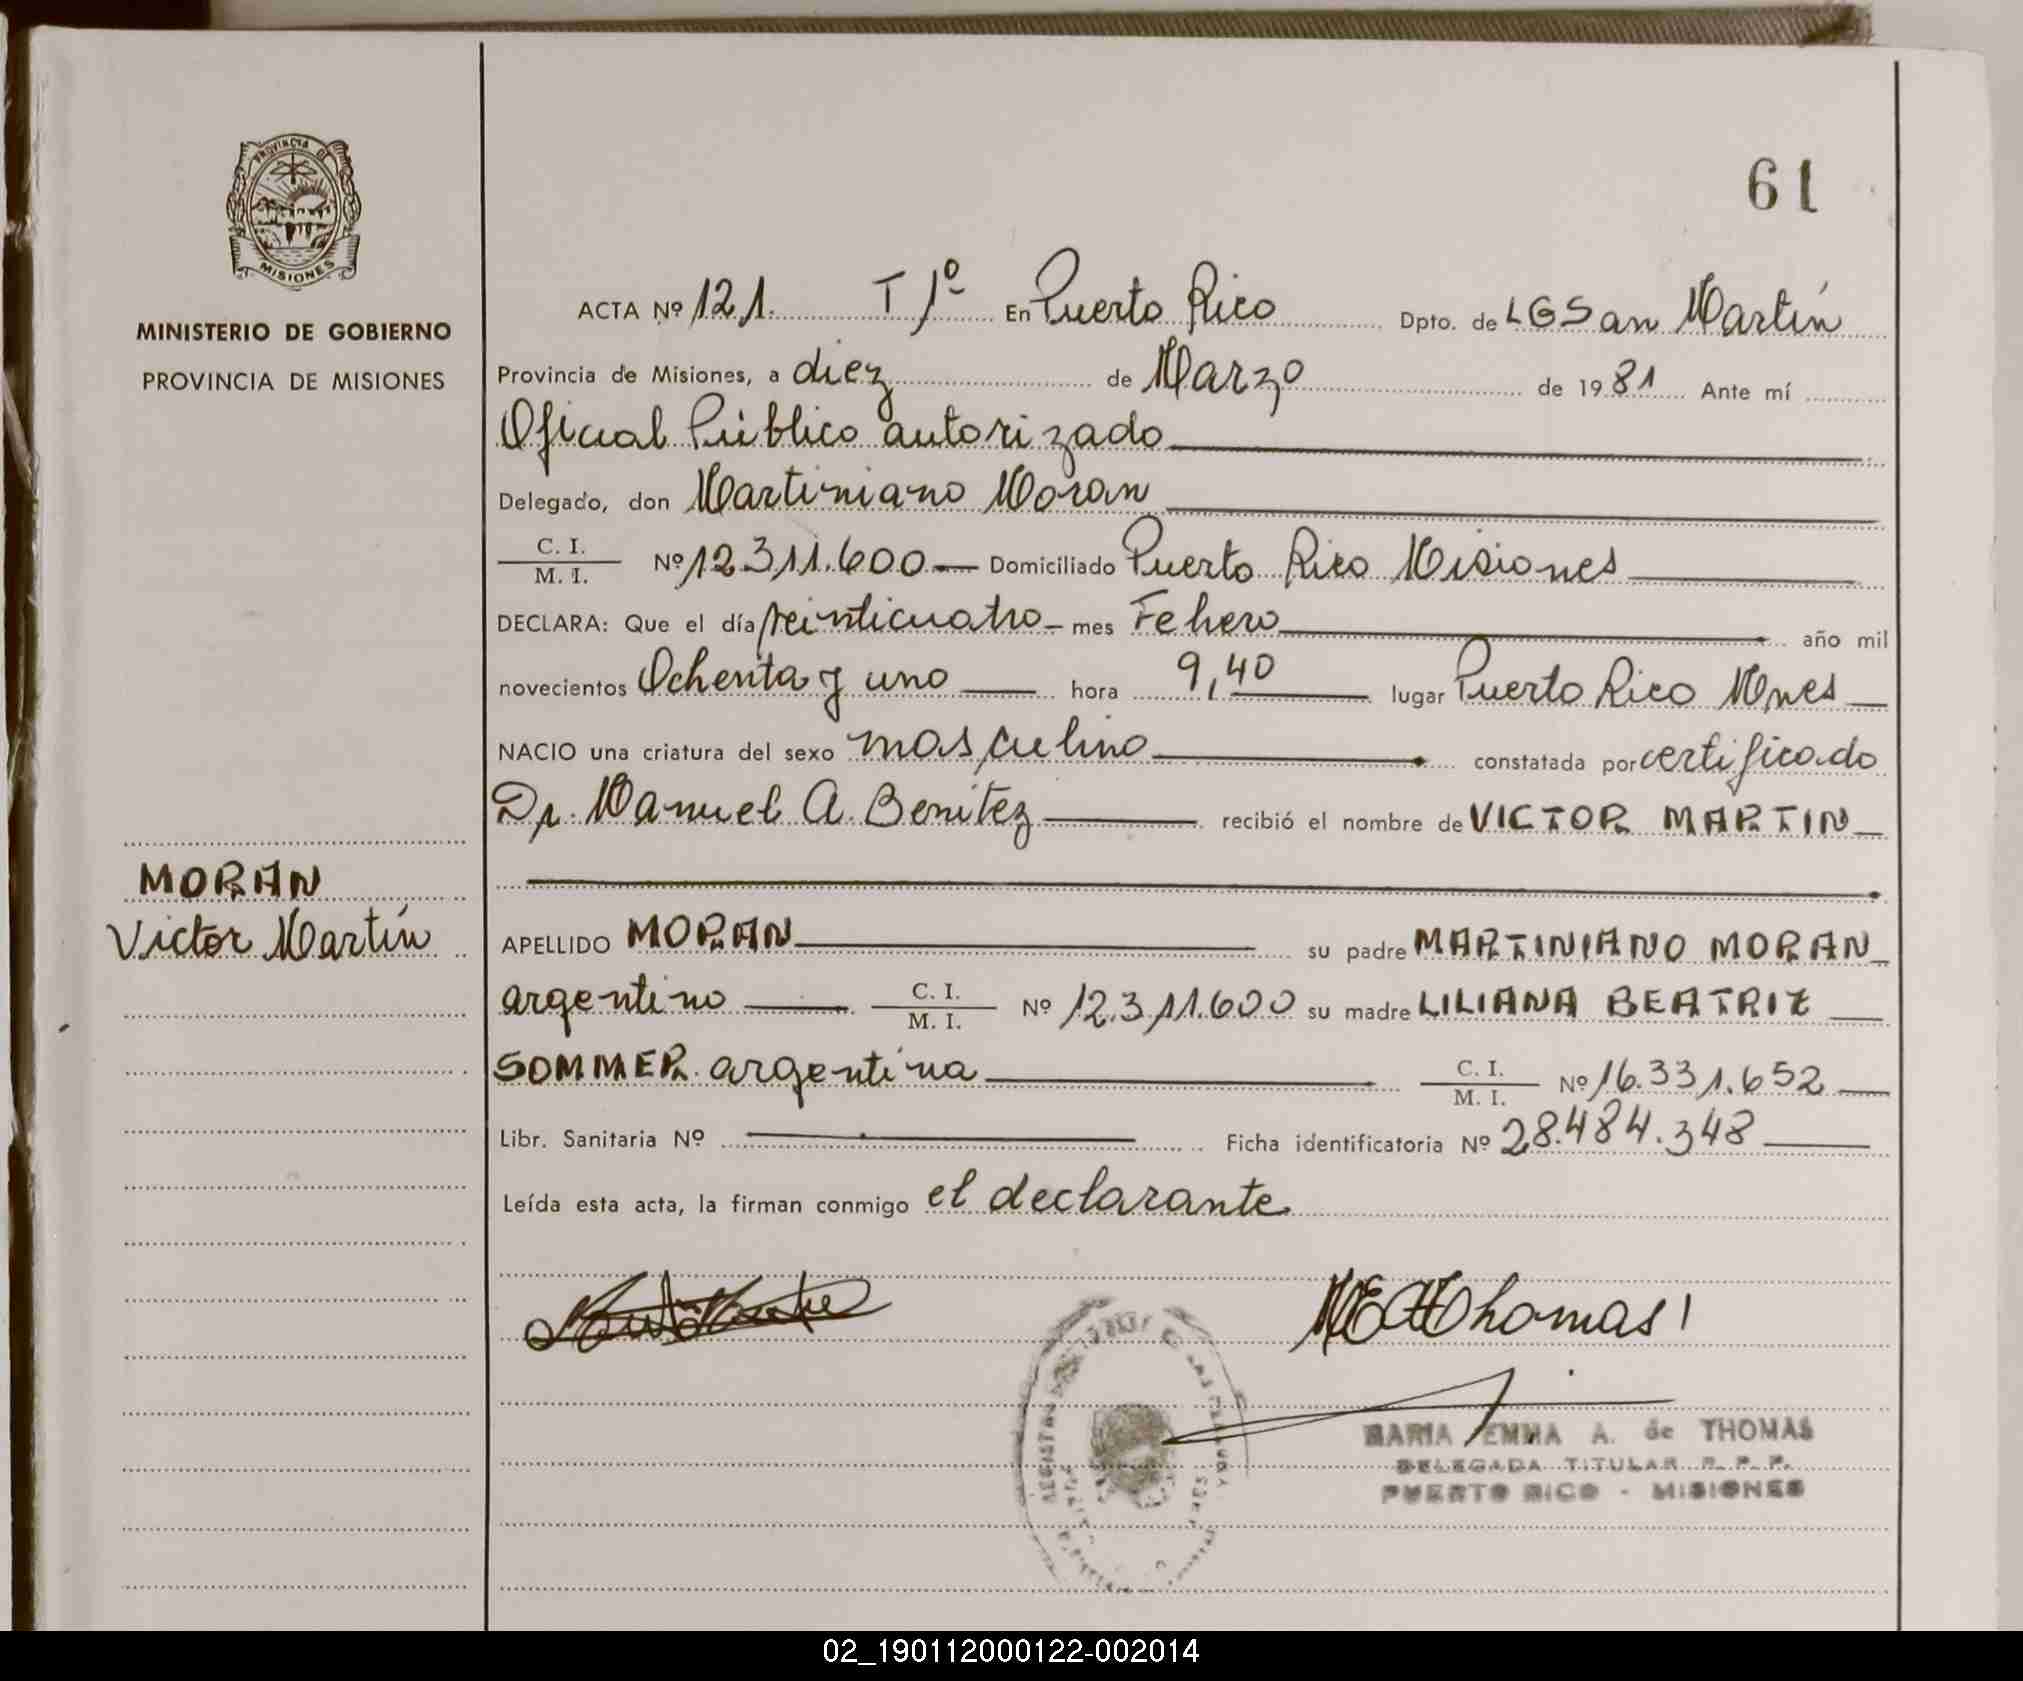 61
PROVINCIA DE
MISIONES
MINISTERIO DE GOBIERNO
PROVINCIA DE MISIONES
MORAN
Victor Martín
ACTA Nº 121. T 1º En Puerto Rico Dpto. de LGSan Martín
Provincia de Misiones, a diez de Marzo de 1981 Ante mí
Oficial Público autorizado
Delegado, don Martiniano Moran
C. I.
M. I. Nº 12.311.600 Domiciliado Puerto Rico Misiones
DECLARA: Que el día veinticuatro mes Febrero año mil
novecientos Ochenta y uno hora 9,40 lugar Puerto Rico Mnes
NACIO una criatura del sexo masculino constatada por certificado
Dr. Manuel A. Benitez recibió el nombre de VICTOR MARTIN
APELLIDO MORAN su padre MARTINIANO MORAN
argentino C. I.
M. I. Nº 12.311.600 su madre LILIANA BEATRIZ
SOMMER argentina C. I.
M. I. Nº 16.331.652
Libr. Sanitaria Nº Ficha identificatoria Nº 28.484.348
Leída esta acta, la firman conmigo el declarante
MEAThomas
MARIA EMMA A. de THOMAS
DELEGADA TITULAR R. P. P.
PUERTO RICO - MISIONES
02_190112000122-002014